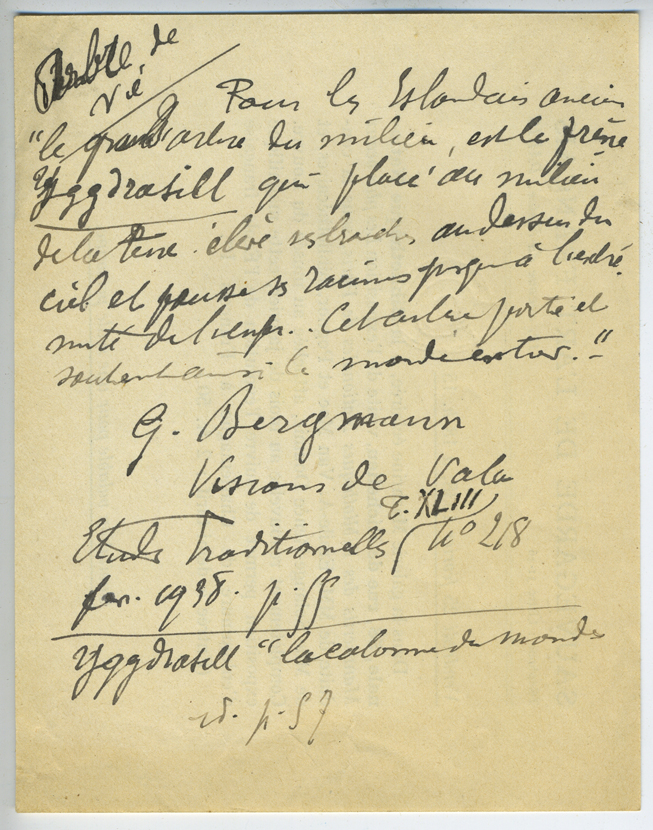 L'arbre de
Vie
Pour les Islandais anciens
"le grand arbre du milieu, est le frêne
Yggdrasill qui placé au milieu
de la terre élève ses branches au dessus du
ciel et pousse ses racines jusqu'à l'extré
mité de l'enfer. Cet arbre porte et
soutient ainsi le monde entier."
G. Bergmann
Visions de Vala
T. XLIII
Etudes Traditionnelles n° 218
fev. 1938. p. 55
Yggdrasill "la colonne du monde
id. p. 57